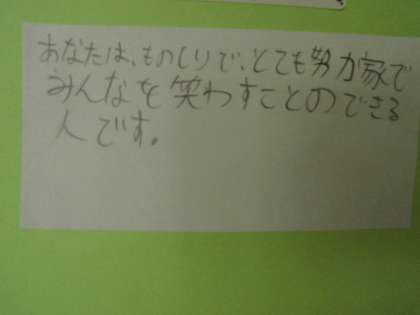 あなたは、ものしりで、とても努力家で
みんなを笑わすことのできる
人です。